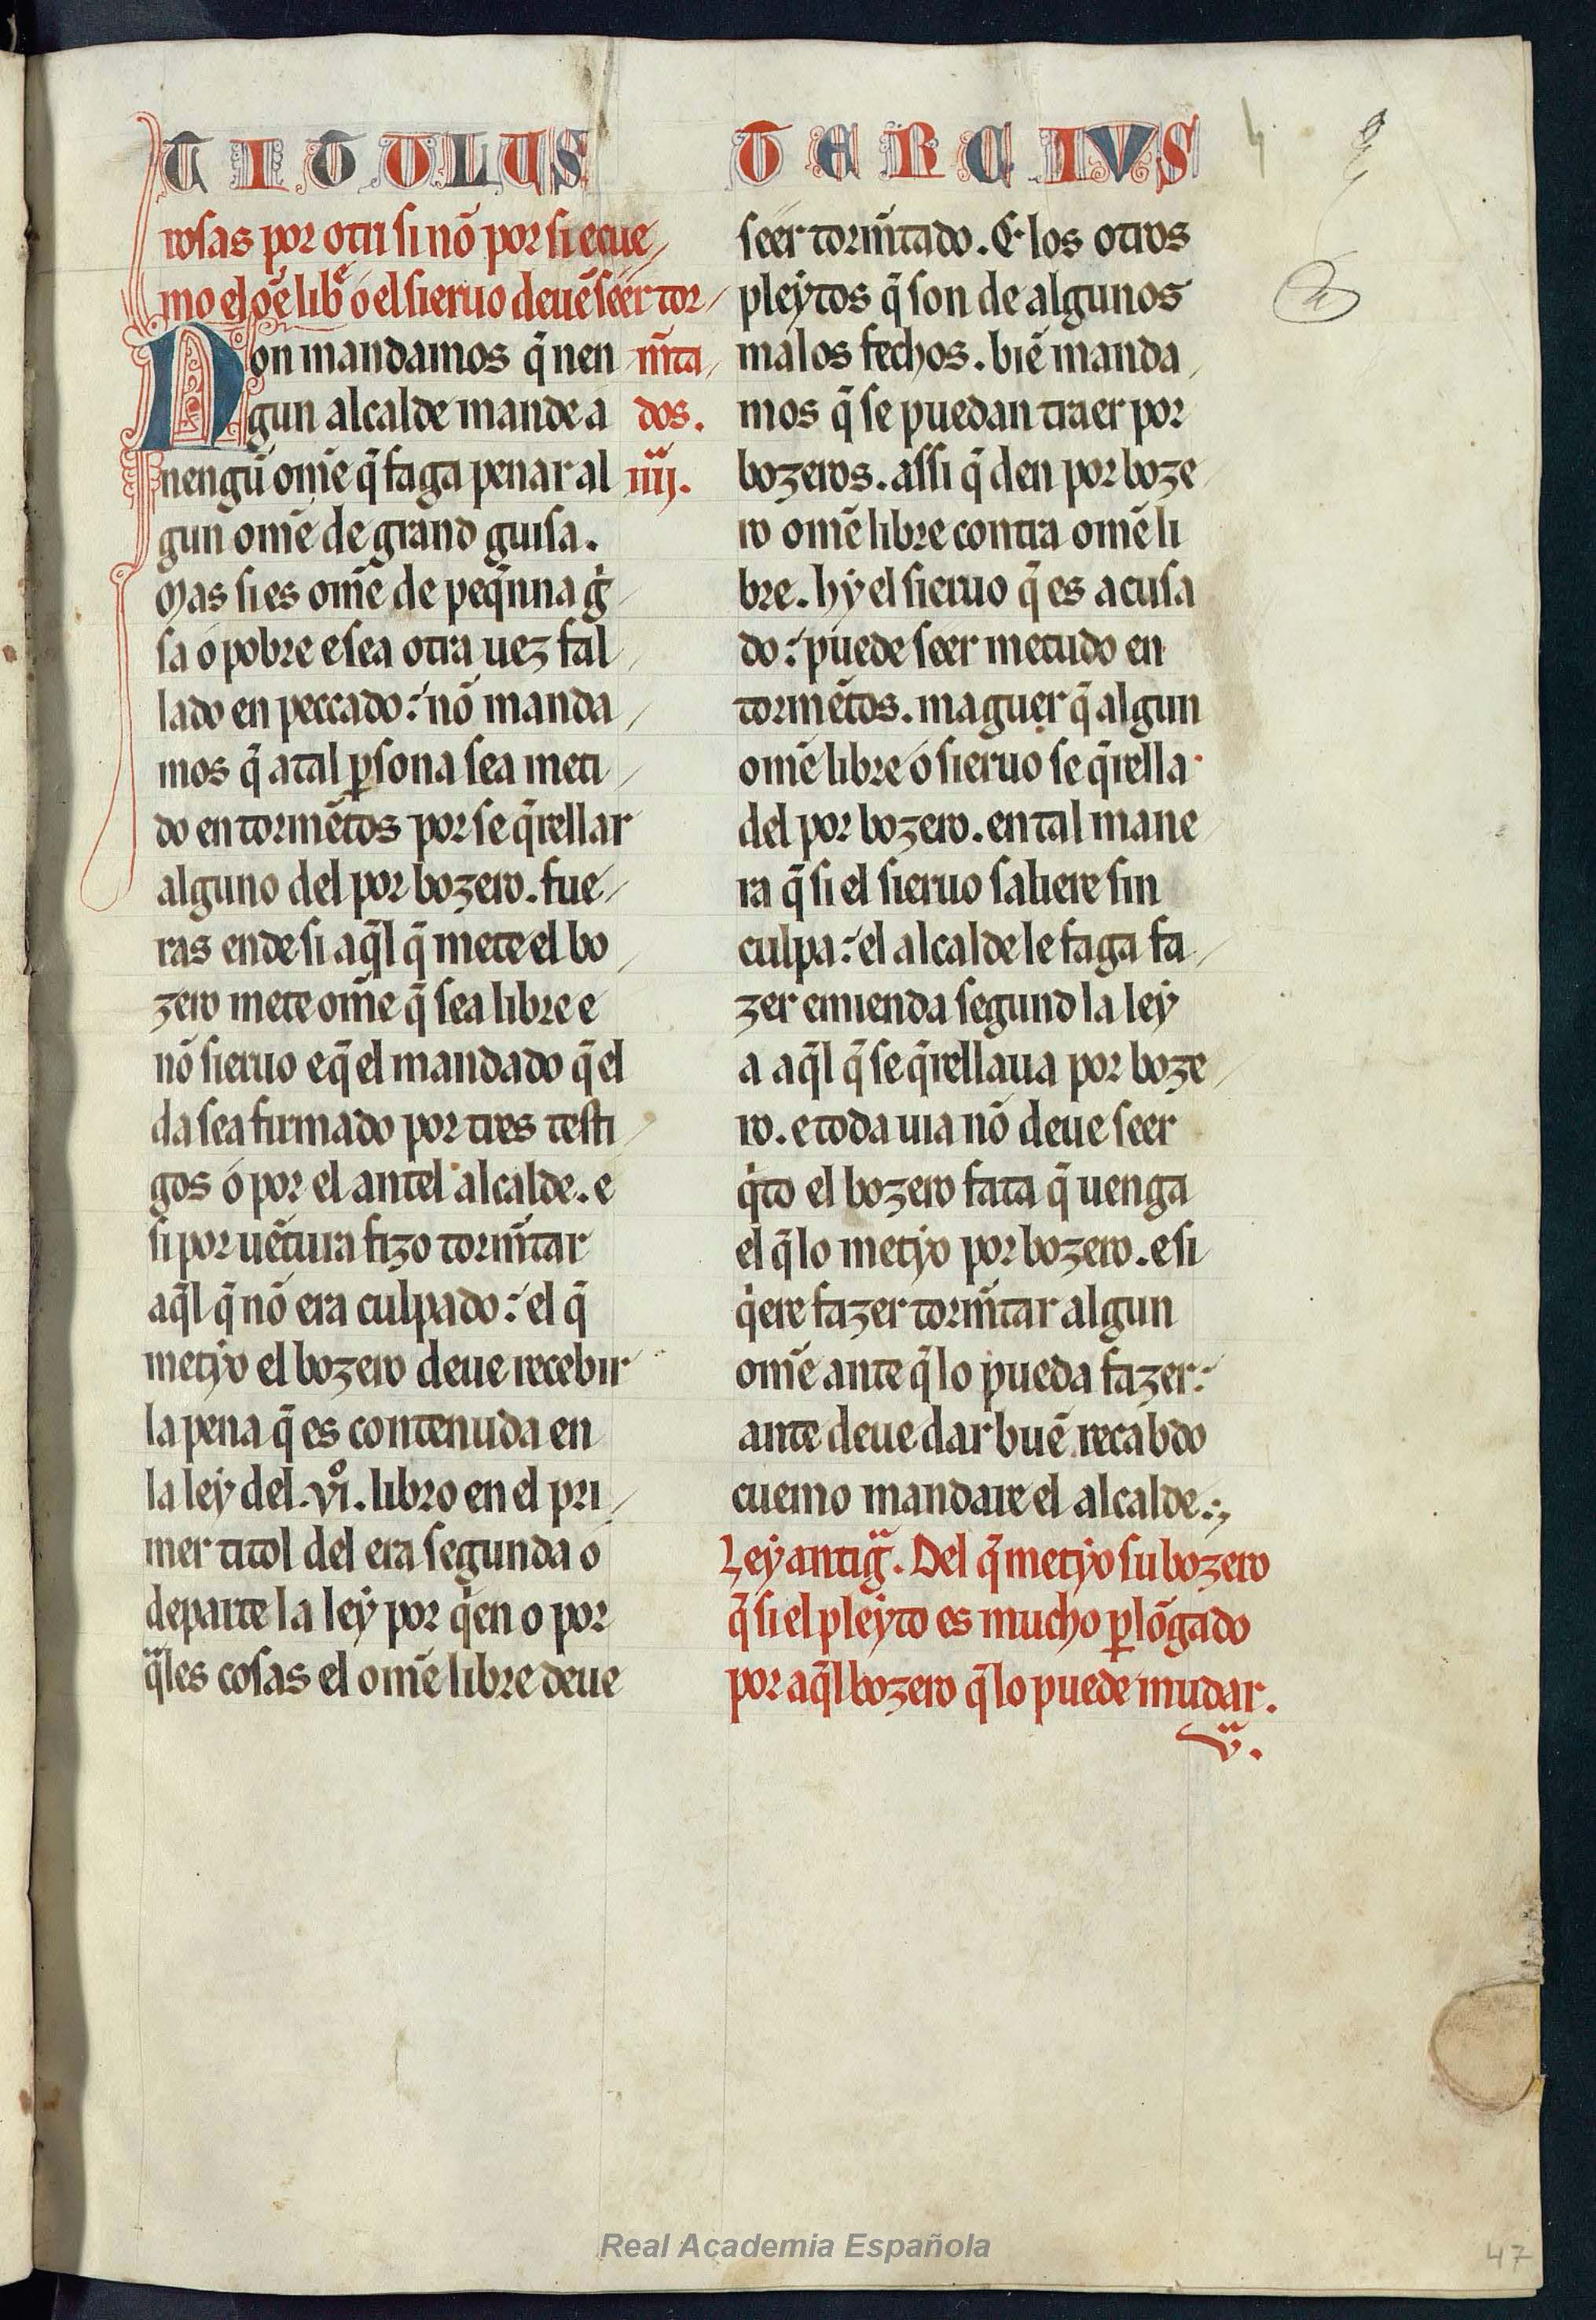 TITULUS TERCIVS
rosas por otri si nõ por si ecue
mo el oẽ libͤ o el sieruo deuẽ seer tor
Non mandamos q̃ nen m̃ta
gun alcalde mande a dos.
nengũ om̃e q̃ faga penar al iiij.ª
gun om̃e de grand guisa.
Mas si es om̃e de peq̃nna gͥ
sa o pobre e sea otra uez fal
lado en peccado: nõ manda
mos q̃ atal ꝑsona sea meti
do en tormẽtos por se q̃rellar
alguno del por bozero. fue
ras ende si aq̃l q̃ mete el bo
zero mete om̃e q̃ sea libre e
nõ sieruo e q̃ el mandado q̃ el
da sea firmado por tres testi
gos o por el antel alcalde. e
si por uẽtura fizo torm̃tar
aq̃l q̃ nõ era culpado: el q̃
metyo el bozero deue recebir
la pena q̃ es contenuda en
la ley del .viº. libro en el pri
mer titol del era segunda o
departe la ley por qͥen o por
qͣles cosas el om̃e libre deue
seer torm̃tado. E los otros
pleytos q̃ son de algunos
malos fechos. biẽ manda
mos q̃ se puedan traer por
bozeros. assi q̃ den por boze
ro omẽ libre contra omẽ li
bre. hy el sieruo q̃ es acusa
do: puede seer metudo en
tormẽtos. maguer q̃ algun
omẽ libre o sieruo se q̃rella
del por bozero. en tal mane
ra q̃ si el sieruo saliere sin
culpa: el alcalde le faga fa
zer emienda segund la ley
a aq̃l q̃ se q̃rellaua por boze
ro. e toda uia nõ deue seer
qͥto el bozero fata q̃ uenga
el q̃ lo metyo por bozero. e si
qͥere fazer torm̃tar algun
om̃e ante q̃ lo pueda fazer:
ante deue dar buẽ recabdo
cuemo mandare el alcalde.
Ley antigͣ. Del q̃ metyo su bozero
q̃ si el pleyto es mucho ꝑlõgado
por aq̃l bozero q̃ lo puede mudar.
v.ª
Real Academia Española
47